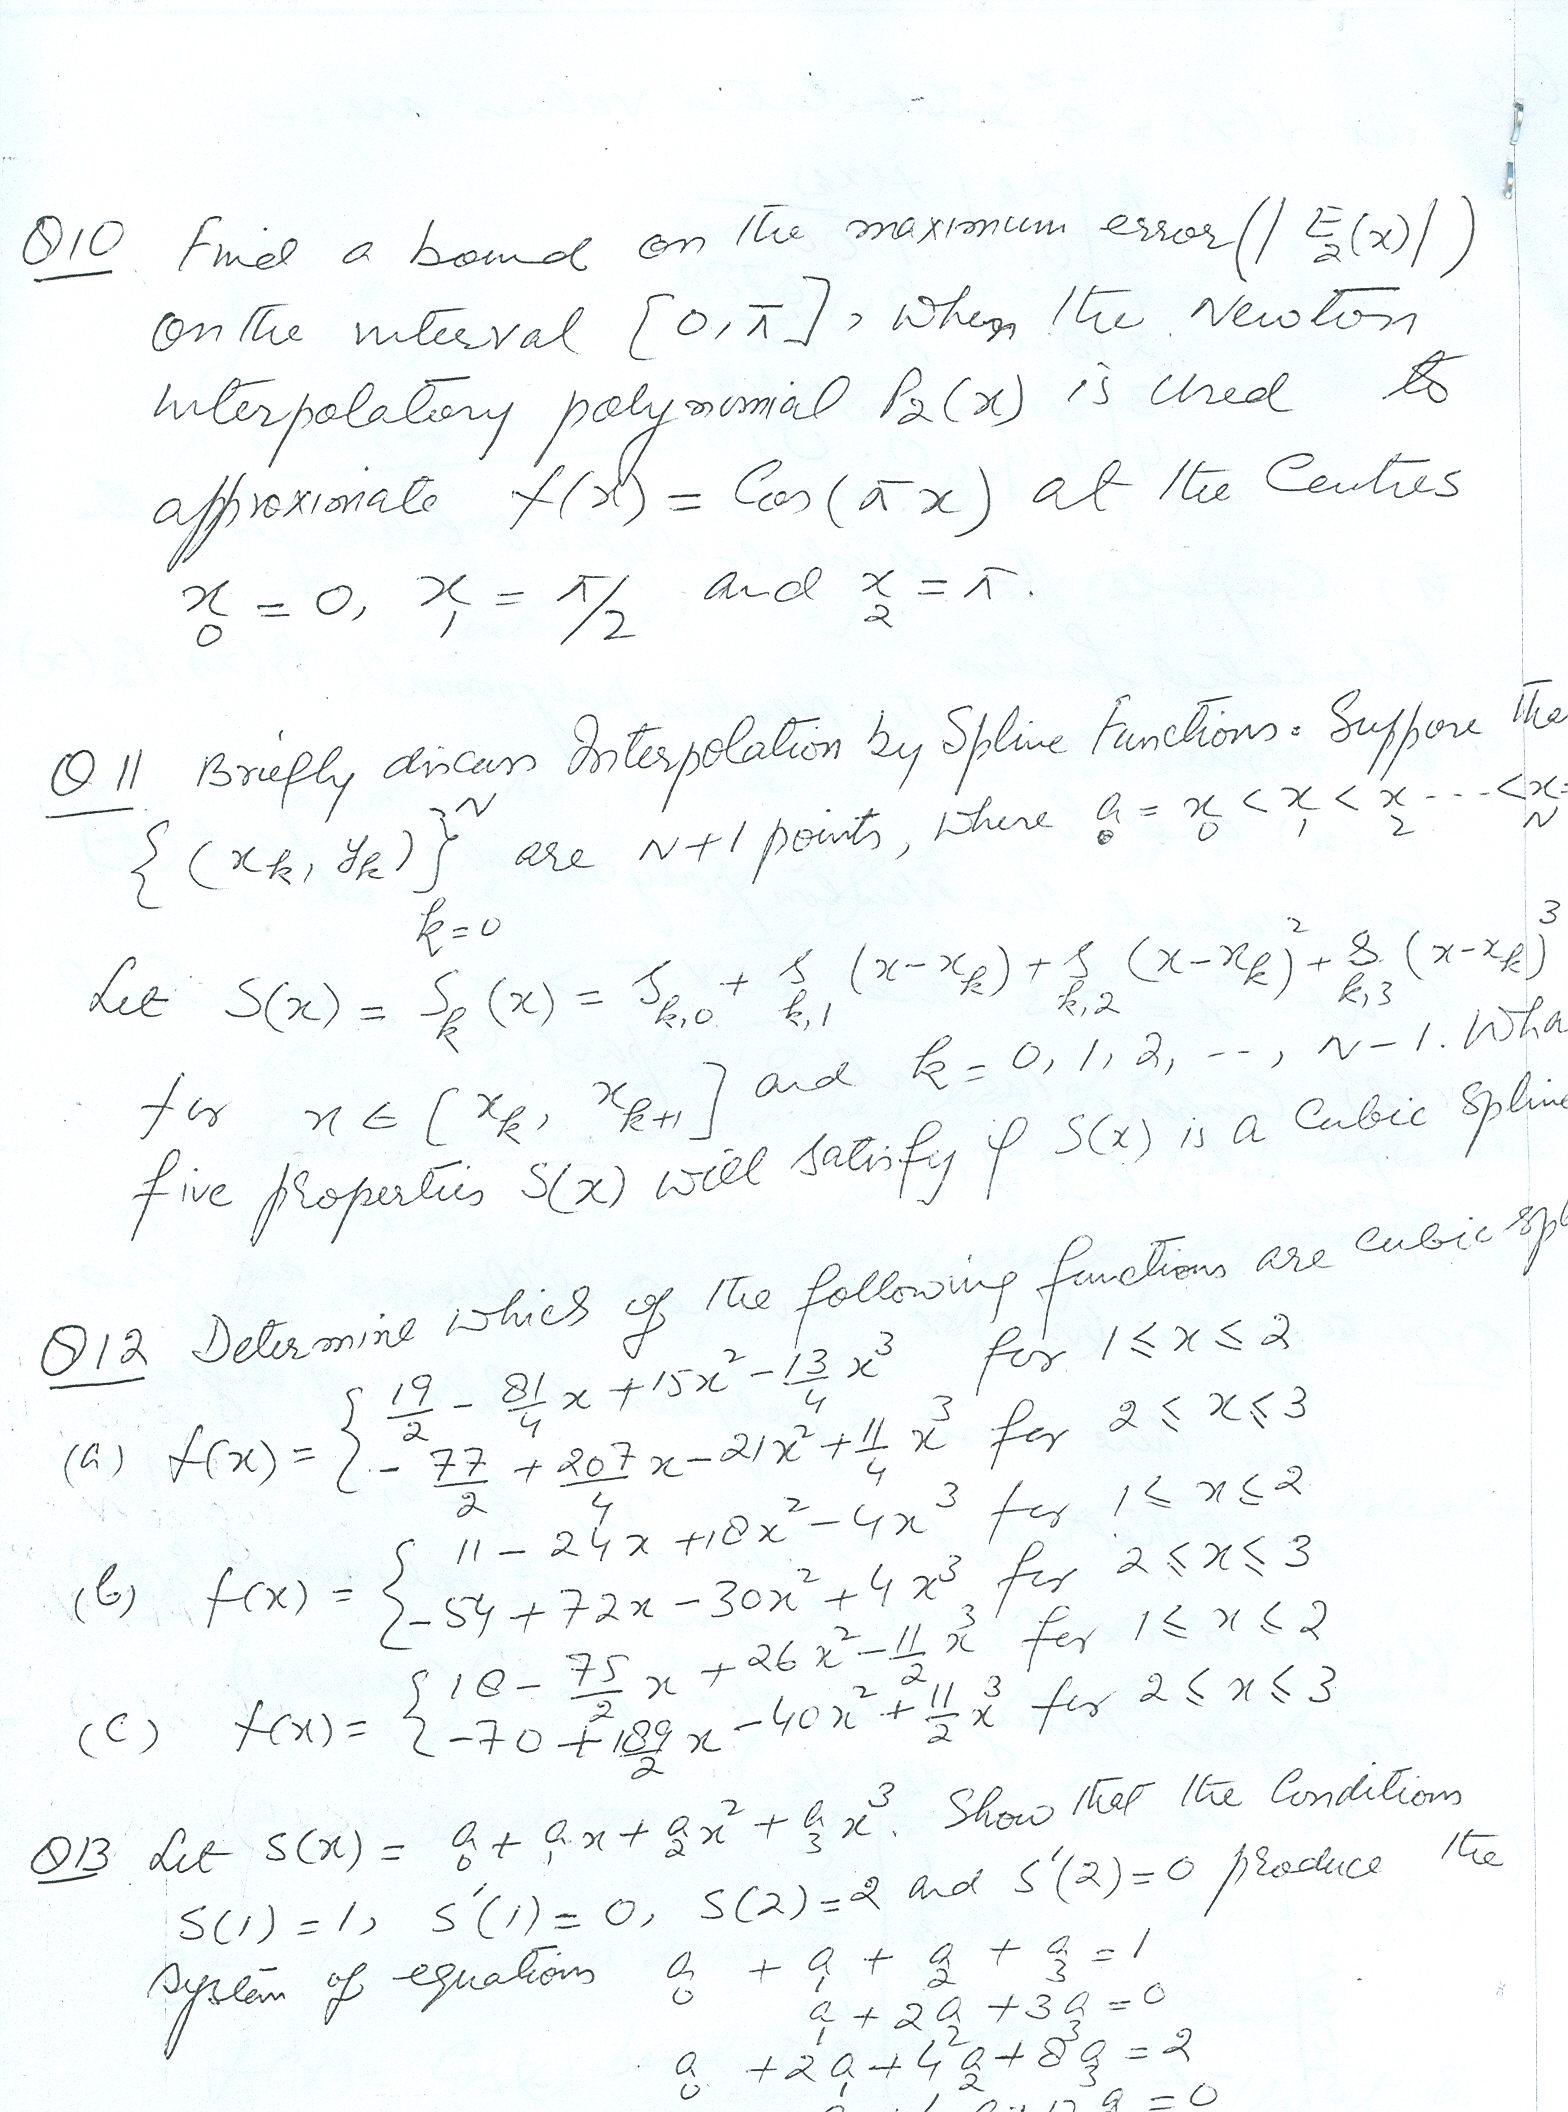 Q10 Find a bound on the maximum error (|E₂(x)|)
on the interval [0, π], when the Newton
interpolatory polynomial P₂(x) is used to
approximate f(x) = Cos(πx) at the Centres
x₀ = 0, x₁ = π/2 and x₂ = π.
Q11 Briefly discuss Interpolation by Spline Functions. Suppose tha
{(xₖ, yₖ)}ᴺₖ₌₀ are N+1 points, where a₀ = x₀ < x₁ < x₂ --- < x_N =
Let S(x) = Sₖ(x) = Sₖ,₀ + Sₖ,₁ (x-xₖ) + Sₖ,₂ (x-xₖ)² + Sₖ,₃ (x-xₖ)³
for x ∈ [xₖ, xₖ₊₁] and k = 0, 1, 2, --, N-1. Wha
five properties S(x) will satisfy if S(x) is a Cubic Spline
Q12 Determine which of the following functions are cubic spl
(a) f(x) = { 19/2 - 81/4 x + 15x² - 13/4 x³ for 1 ≤ x ≤ 2
-77/2 + 207/4 x - 21x² + 11/4 x³ for 2 ≤ x ≤ 3
(b) f(x) = { 11 - 24x + 18x² - 4x³ for 1 ≤ x ≤ 2
-54 + 72x - 30x² + 4x³ for 2 ≤ x ≤ 3
(c) f(x) = { 18 - 75/2 x + 26x² - 11/2 x³ for 1 ≤ x ≤ 2
-70 + 189/2 x - 40x² + 11/2 x³ for 2 ≤ x ≤ 3
Q13 Let S(x) = a₀ + a₁x + a₂x² + a₃x³. Show that the Conditions
S(1) = 1, S'(1) = 0, S(2) = 2 and S'(2) = 0 produce the
system of equations a₀ + a₁ + a₂ + a₃ = 1
a₁ + 2a₂ + 3a₃ = 0
a₀ + 2a₁ + 4a₂ + 8a₃ = 2
= 0